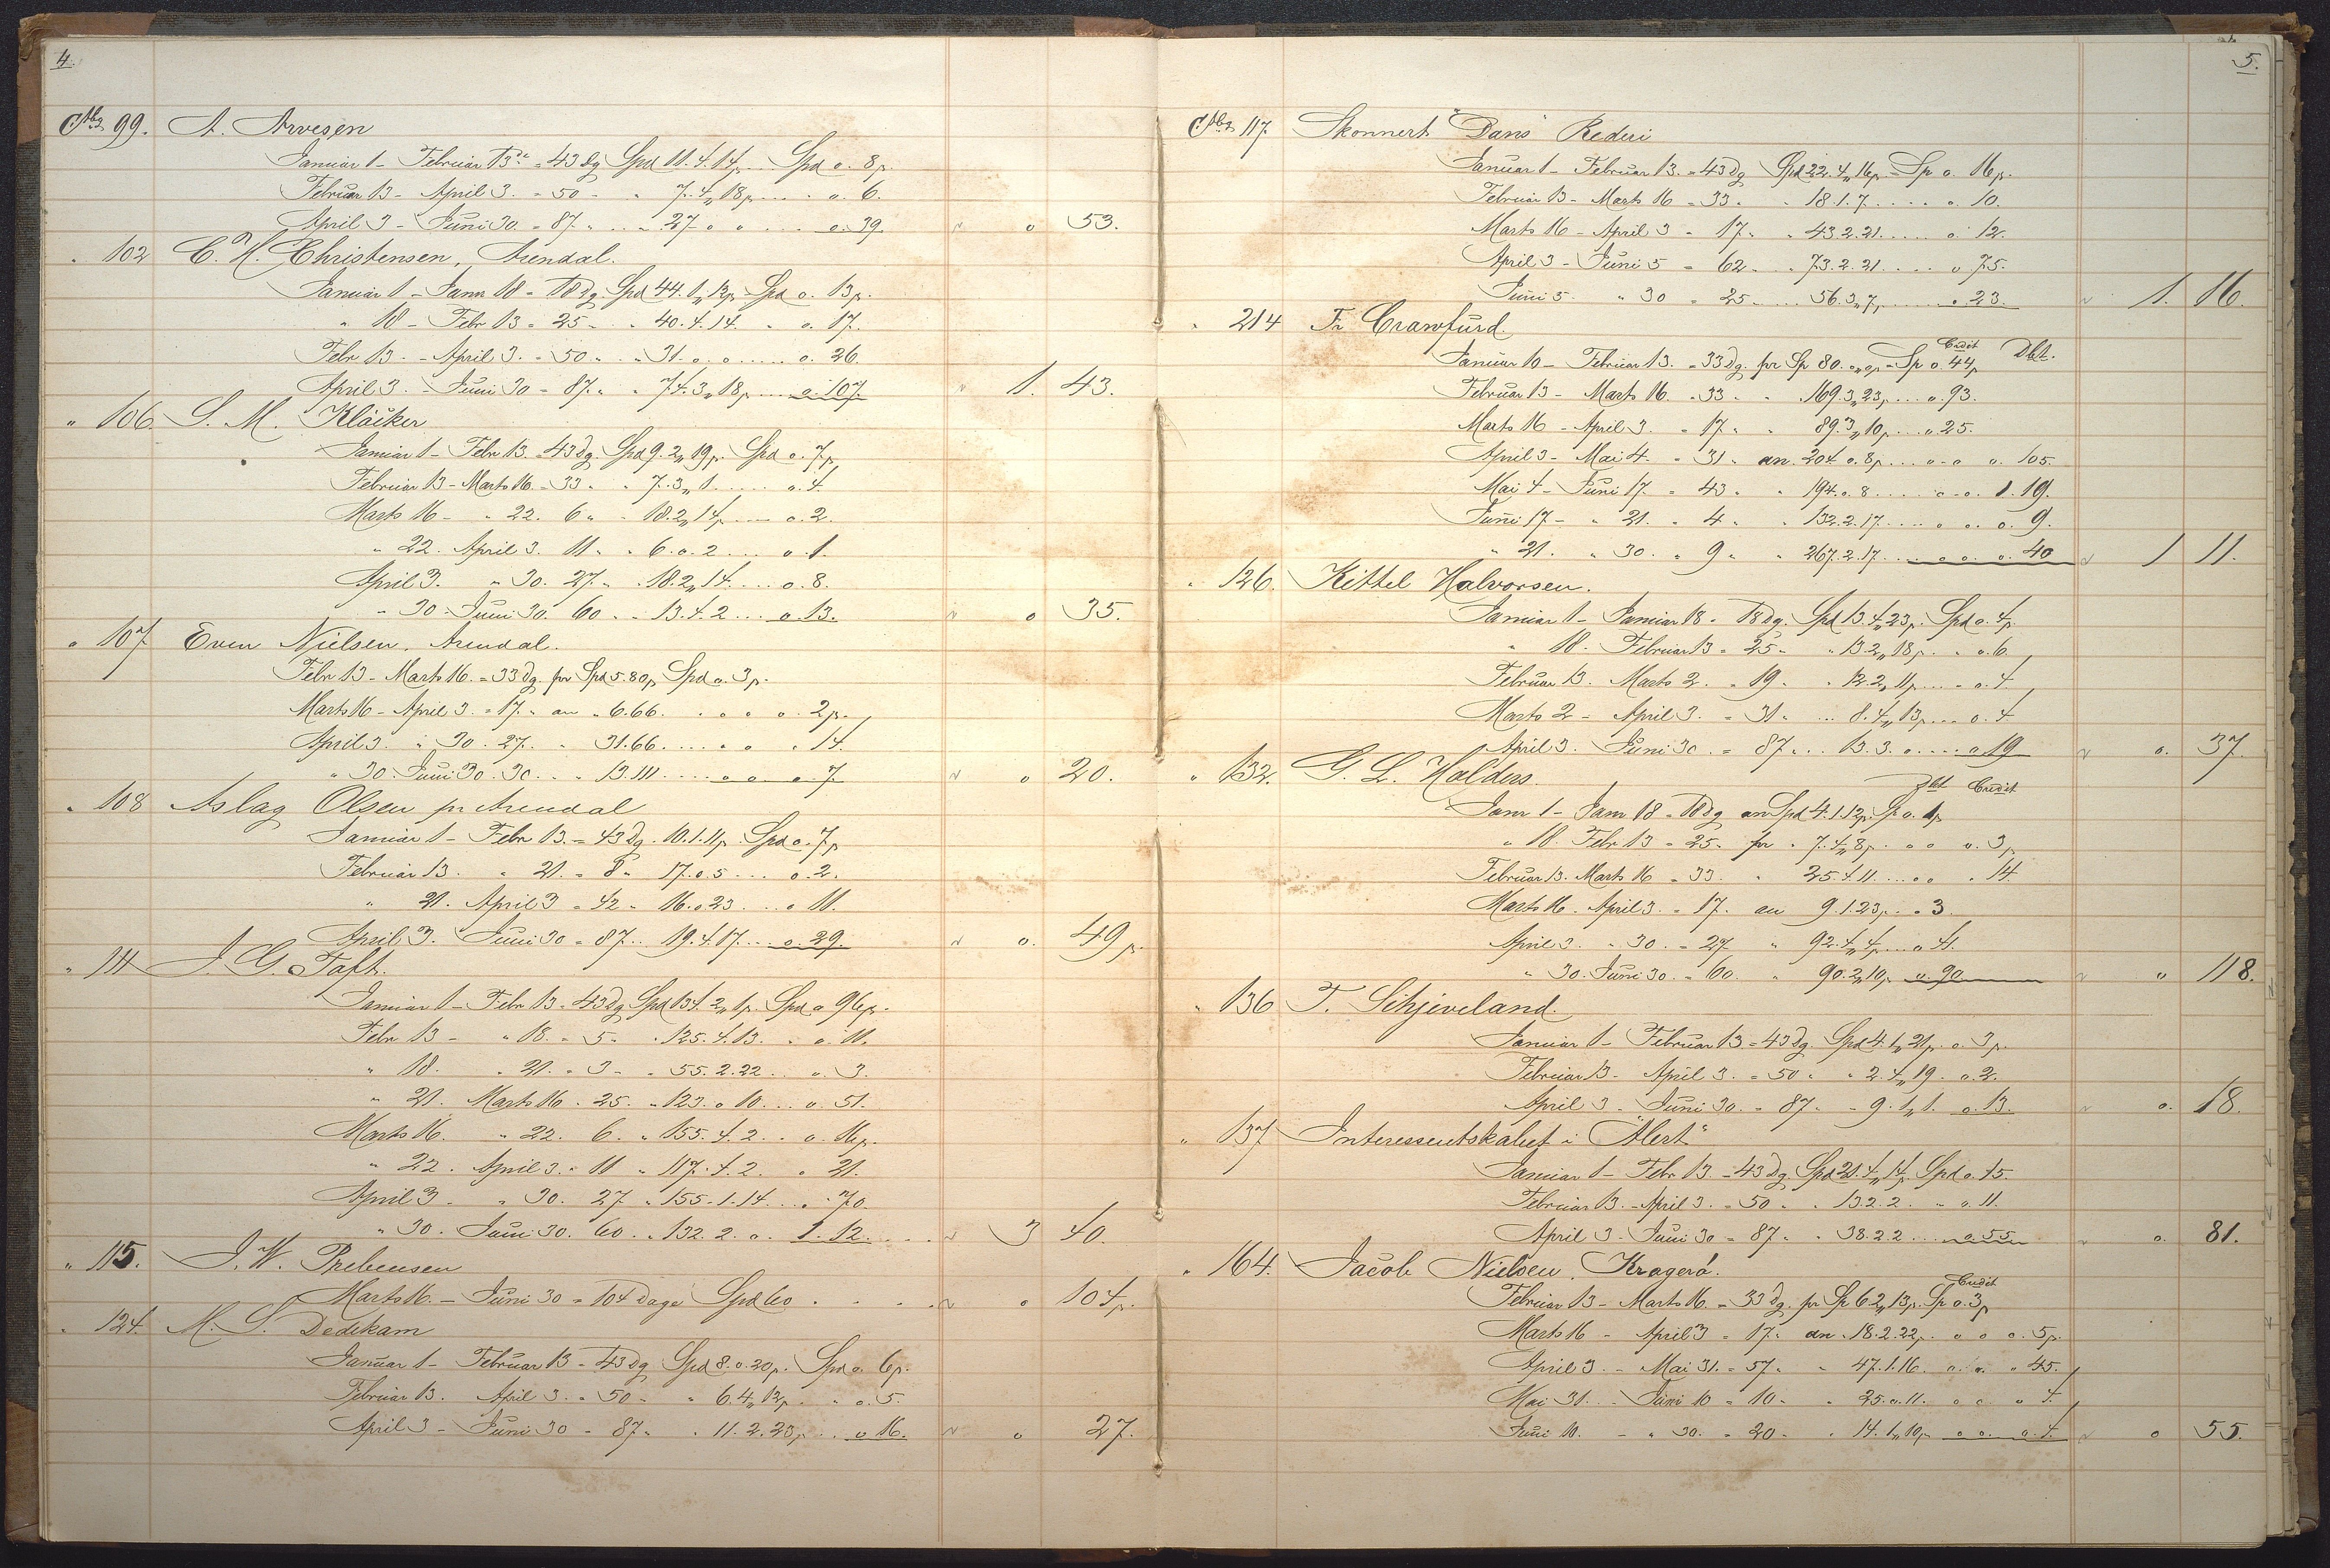 4.
Cto 99. A. Arvesen
Januar 1 - Februar 13de = 43 dg Spd 11.4.14p. ... Spd o. 8p.
Februar 13 - April 3. = 50 - " 7.4„18p. ... - o. 6.
April 3 - Juni 30. = 87. " ... 27. o o ... o. 39. o 53.
" 102 C. H. Christensen, Arendal.
Januar 1 - Janr 18 - 18 dg. Spd 44.1„12p. Spd o. 13p.
" 18 - Febr 13 = 25 - " 40.4.14. " o. 17.
Febr 13. - April 3. = 50 " " 31. o. o. ... o. 26.
April 3. - Juni 30 = 87. " " 74.3„18p. ... o. 107. 1. 43.
" 106. S. M. Kløcker
Januar 1 - Febr 13. = 43 dg. Spd 9.2„19p. Spd o. 7p.
Februar 13 - Marts 16. = 33. " " 7.3„1. ... o. 4.
Marts 16 - " 22. 6 " - 18.2„14p. ... o. 2.
" 22. April 3. 11. " " 6.o.2 ... o. 1.
April 3. " 30. 27. " " 18.2„14. ... o. 8.
" 30 - Juni 30. 60 " " 13.4.2 ... o. 13. o 35.
" 107 Even Nielsen, Arendal.
Febr 13 - Marts 16. = 33 dg. pr Spd 5.80p Spd o. 3p.
Marts 16 - April 3. = 17. " an " 6.66. " o o o. 2p.
April 3. " 30. 27. " 31.66. ... " o " 14.
" 30. Juni 30. 30. " " 13.111. ... o o o. 7. o 20.
" 108 Aslag Olsen pr Arendal
Januar 1 - Febr 13. = 43 dg. 10.1.11p. Spd o. 7p
Februar 13. " 21. = 8 " 17.o.5 ... o. 2.
" 21. April 3 = 42 " 16.o.23. ... o 11.
April 3. Juni 30 = 87. .. 19.4.17. ... o. 29. o. 49p.
" 111 J. G. Taft.
Januar 1 - Febr 13 = 43 dg Spd 134.2„1p. Spd o 96p.
Febr 13 - " 18. = 5 " " 125.4.13. " o. 11.
" 18. " 21. = 3 - " 55.2.22 .. o. 3.
" 21. Marts 16. 25. " 123.o.10. ... o. 51.
Marts 16. " 22. 6. " 155.4.2. .. o. 16p.
" 22. April 3. = 11 " 117.4.2. " 21.
April 3 - " 30. 27 " 155.1.14. ... " 70.
" 30. Juni 30. 60. " 132.2.o. 1.12. ... 3 40.
" 115. J. W. Prebensen
Marts 16. - Juni 30 = 104 Dage Spd 60 . . . . . o 104p.
" 124. M. S. Dedekam
Januar 1 - Februar 13 = 43 dg Spd 8.o.20p. Spd o. 6p.
Februar 13. April 3. = 50 - " 6.4„12p. " o. 5.
April 3 - Juni 30 - 87 " " 11.2.23p. .. o 16. o 27.
5.
Cto 117. Skonnert "Dans" Rederi
Januar 1 - Februar 13. = 43 dg Spd 22.4„16p. = Sp o. 16p.
Februar 13 - Marts 16 = 33. " " 18.1.7. ... o. 10.
Marts 16 - April 3 = 17. " " 43.2.21. ... o. 12.
April 3 - Juni 5 = 62. .. 73.2.21. ... o 75.
Juni 5. " 30 = 25. ... 56.3„7p. ... o 23. 1. 16.
" 214 Fr Crawfurd.
Credit Dbt.
Januar 10 - Februar 13. = 33 dg. pr Sp 80. o„op = Sp o. 44p
Februar 13 - Marts 16. = 33 " " 169.3„23p. ... o. 93.
Marts 16 - April 3. = 17. " " 89.3„10p. ... o. 25.
April 3 - Mai 4. = 31 " an. 204.o.8p. ... o - o o. 105.
Mai 4 - Juni 17. = 43. " " 194.o.8 ... o - o. 1.19.
Juni 17 - " 21. = 4 " " 132.2.17. ... o o o. 9.
" 21. " 30. = 9 " " 267.2.17. ... o o o. 40 1 11.
" 126. Kittel Halvorsen.
Januar 1 - Januar 18 = 18 dg. Spd 13.4„23p. Spd o. 4p.
" 18. Februar 13 = 25 - " 13.2„18p. " o. 6.
Februar 13. Marts 2. = 19. " " 12.2„11p. ... o. 4.
Marts 2 - April 3. = 31. ... 8.4„13p. ... o. 4.
April 3. Juni 30. = 87. ... 13.3.o. ... o 19 o. 37.
" 132. G. L. Halders.
Dbt Credit
Janr 1 - Janr 18 = 18 dg an Spd 4.1.12p. Sp o. 1p
" 18. Febr 13 = 25. pr " 7.4„8p. " o o. 3p
Februar 13. Marts 16 = 33. " 25.4.11. ... o o " 14.
Marts 16. April 3. = 17. an 9.1.23p. " o 3.
April 3. " 30. = 27 " 92.4„4p. ... o 41.
" 30. Juni 30. = 60. " 90.2„10p. o. 90. o 118.
" 136 T. Schjeveland.
Januar 1 - Februar 13 = 43 dg. Spd 4.1„21p. o. 3p.
Februar 13 - April 3. = 50 " " 2.4„19. o. 2.
April 3 - Juni 30. = 87. " 9.1„1. o. 13. o. 18.
" 137 Interessentskabet i "Alert"
Januar 1 - Febr 13 = 43 dg. Spd 21.4„14p. Spd o. 15.
Februar 13. - April 3. = 50 " " 13.2.2. " o. 11.
April 3 - Juni 30 = 87. " " 38.2.2 ... o. 55. o. 81.
" 164. Jacob Nielsen, Kragerö.
Credit
Februar 13 - Marts 16. = 33 dg. pr Sp 6.2„13p. Sp o. 3p
Marts 16 - April 3 = 17. " an " 18.2.22p. o o o. 5p.
April 3. - Mai 31. = 57. " " 47.1.16. o. o. " 45.
Mai 31. - Juni 10 = 10. " " 25.o.11. o o " 4.
Juni 10. - " 30. = 20. " " 14.1„10p. o o. o. 4. o 55.